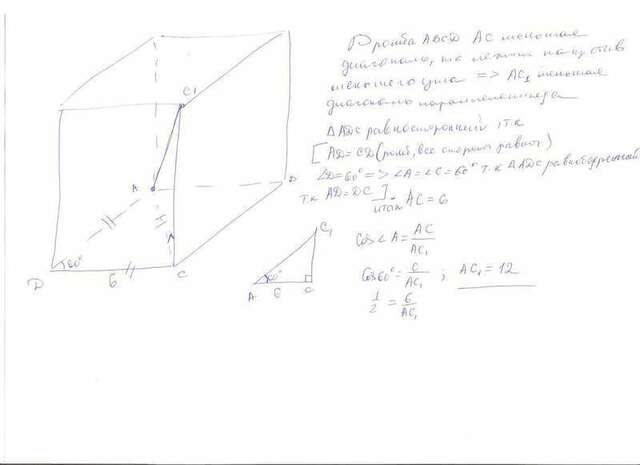 Р ромба ABCD AC меньшая
диагональ, т.к. лежит напротив
меньшего угла => AC₁ меньшая
диагональ параллелепипеда
△ADC равносторонний, т.к
[AD=CD (ромб, все стороны равны)
∠D=60° => ∠A=∠C=60° т.к △ADC равнобедренный
т.к AD=DC]
итак AC=6
Cos∠A = AC/AC₁
Cos60° = 6/AC₁ ; AC₁=12
1/2 = 6/AC₁
C1
A
B
D
60°
6
C
C₁
A
60°
6
C